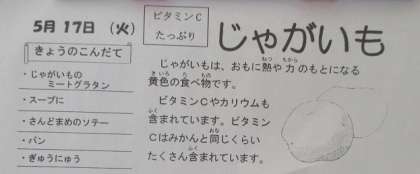 5月17日（火）
ビタミンC
たっぷり
じゃがいも
きょうのこんだて
・じゃがいもの
ミートグラタン
・スープに
・さんどまめのソテー
・パン
・ぎゅうにゅう
じゃがいもは、おもに熱や力のもとになる
黄色の食べ物です。
ビタミンCやカリウムも
含まれています。ビタミン
Cはみかんと同じくらい
たくさん含まれています。